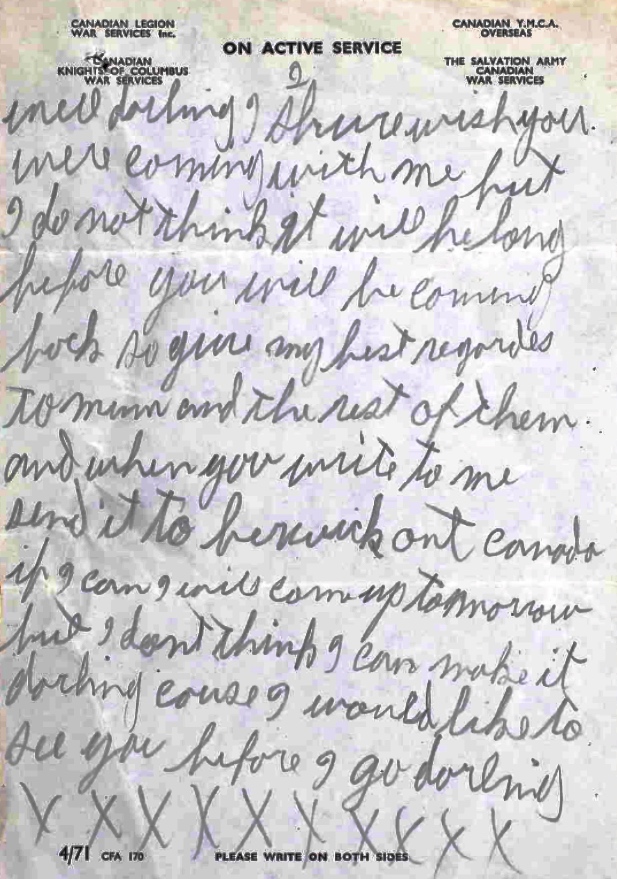 CANADIAN LEGION
WAR SERVICES Inc.
CANADIAN
KNIGHTS OF COLUMBUS
WAR SERVICES
ON ACTIVE SERVICE
CANADIAN Y.M.C.A.
OVERSEAS
THE SALVATION ARMY
CANADIAN
WAR SERVICES
2
well darling I shure wish you.
were coming with me but
I do not think it will be long
before you will be coming
back so give my best regardes
to mum and the rest of them.
and when you write to me
send it to berwick ont canada
if I can I will come up tomorrow
but I dont think I can make it
darling cause I would like to
see you before I go darling
X X X X X X X X X X
4/71 CFA 170 PLEASE WRITE ON BOTH SIDES